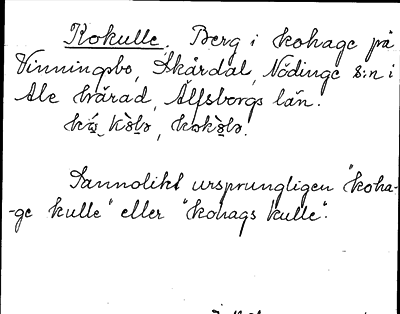 Kokulle. Berg i kohage på
Vinningsbo, Skårdal, Nödinge s:n i
Ale härad, Älfsborgs län.
Sannolikt ursprungligen "koha-
-ge kulle" eller "kohags kulle".